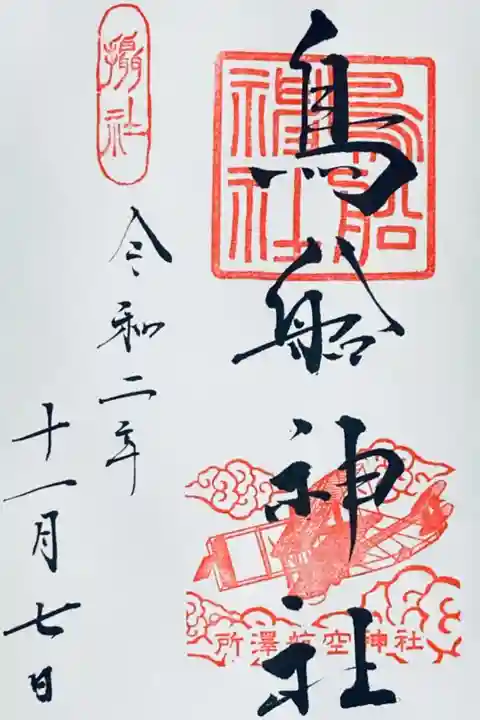 鳥船神社
鳥船神社
所澤航空神社
摂社
令和二年
十一月七日